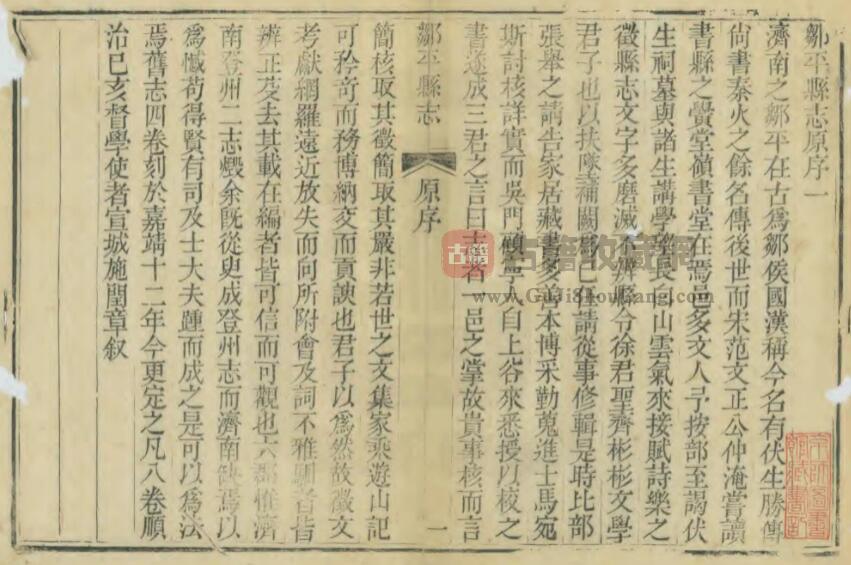 鄒平縣志原序一
濟南之鄒平在古為鄒侯國漢稱今名有伏生勝傳
尙書秦火之餘名傳後世而宋范文正公仲淹嘗讀
書縣之黌堂嶺書堂在焉邑多文人予按部至謁伏
生祠墓與諸生講學登長白山雲氣來接賦詩樂之
徵縣志文字多磨滅不辨縣令徐君聖齊彬彬文學
君子也以扶墜補闕為己任請從事修輯是時比部
張舉之請告家居藏書多善本博采勤蒐進士馬宛
斯討核詳實而吳門碩學自上谷來悉授以校之
書遂成三君之言曰志者一邑之掌故貴事核而言
鄒平縣志
原序
一
簡核取其徵簡取其嚴非若世之文集家乘遊山記
可矜奇而務博納交而貢諛也君子以為然故徵文
考獻網羅遠近放失而向所附會及詞不雅馴者皆
辨正芟去其載在編者皆可信而可觀也六郡惟濟
南登州二志燬余既從臾成登州志而濟南缺焉以
為憾苟得賢有司及士大夫踵而成之是可以為法
焉舊志四卷刻於嘉靖十二年今更定之凡八卷順
治己亥督學使者宣城施閏章叙
古籍
古籍收藏網
www.GuJiShouCang.com